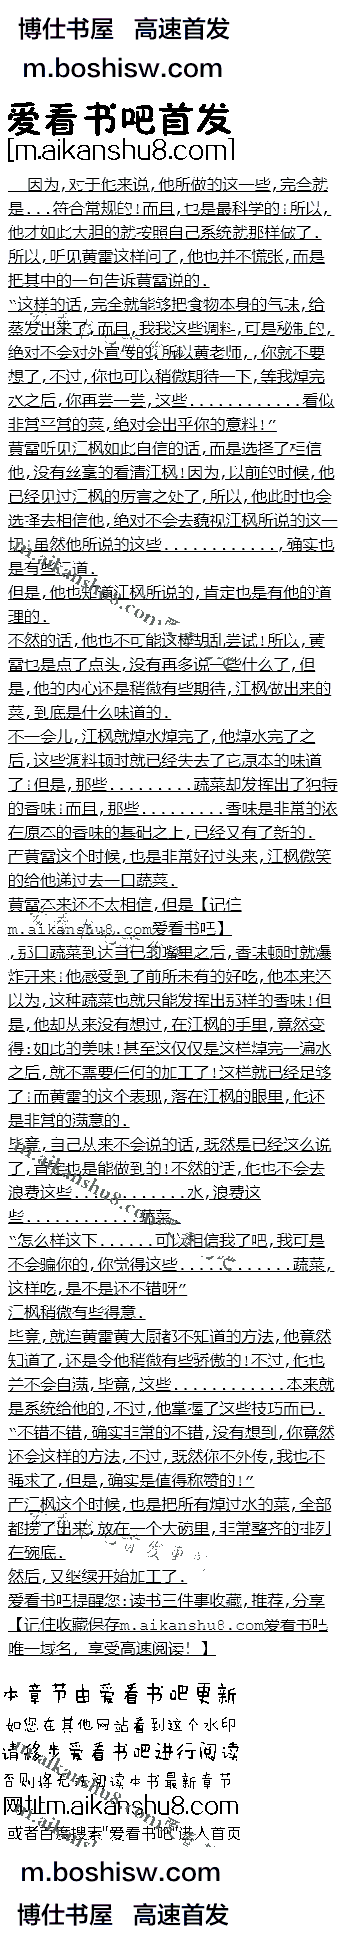 博仕书屋 高速首发
m.boshisw.com
爱看书吧首发
[m.aikanshu8.com]
因为,对于他来说,他所做的这一些,完全就
是...符合常规的!而且,也是最科学的!所以,
他才如此大胆的就按照自己系统就那样做了.
所以,听见黄雷这样问了,他也并不慌张,而是
把其中的一句告诉黄雷说的.
“这样的话,完全就能够把食物本身的气味,给
蒸发出来了,而且,我我这些调料,可是秘制的,
绝对不会对外宣传的,所以黄老师,,你就不要
想了,不过,你也可以稍微期待一下,等我焯完
水之后,你再尝一尝,这些............看似
非常平常的菜,绝对会出乎你的意料!”
黄雷听见江枫如此自信的话,而是选择了相信
他,没有丝毫的看清江枫!因为,以前的时候,他
已经见过江枫的厉害之处了,所以,他此时也会
选择去相信他,绝对不会去藐视江枫所说的这一
切!虽然他所说的这些............,确实也
是有些 道.
但是,他也知道江枫所说的,肯定也是有他的道
理的.
不然的话,他也不可能这样胡乱尝试!所以,黄
雷也是点了点头,没有再多说一些什么了,但
是,他的内心还是稍微有些期待,江枫做出来的
菜,到底是什么味道的.
不一会儿,江枫就焯水焯完了,他焯水完了之
后,这些调料顿时就已经失去了它原本的味道
了!但是,那些.........蔬菜却发挥出了独特
的香味!而且,那些.........香味是非常的浓
在原本的香味的基础之上,已经又有了新的.
而黄雷这个时候,也是非常好过头来,江枫微笑
的给他递过去一口蔬菜.
黄雷本来还不太相信,但是【记住
m.aikanshu8.com爱看书吧】
,那口蔬菜到达自己的嘴里之后,香味顿时就爆
炸开来!他感受到了前所未有的好吃,他本来还
以为,这种蔬菜也就只能发挥出那样的香味!但
是,他却从来没有想过,在江枫的手里,竟然变
得:如此的美味!甚至这仅仅是这样焯完一遍水
之后,就不需要任何的加工了!这样就已经足够
了!而黄雷的这个表现,落在江枫的眼里,他还
是非常的满意的.
毕竟,自己从来不会说的话,既然是已经这么说
了,肯定也是能做到的!不然的话,他也不会去
浪费这些............水,浪费这
些............蔬菜.
“怎么样这下......可以相信我了吧,我可是
不会骗你的,你觉得这些............蔬菜,
这样吃,是不是还不错呀”
江枫稍微有些得意.
毕竟,就连黄雷黄大厨都不知道的方法,他竟然
知道了,还是令他稍微有些骄傲的!不过,他也
并不会自满,毕竟,这些............本来就
是系统给他的,不过,他掌握了这些技巧而已.
“不错不错,确实非常的不错,没有想到,你竟然
还会这样的方法,不过,既然你不外传,我也不
强求了,但是,确实是值得称赞的!”
而江枫这个时候,也是把所有焯过水的菜,全部
都捞了出来,放在一个大碗里,非常整齐的排列
在碗底.
然后,又继续开始加工了.
爱看书吧提醒您:读书三件事收藏,推荐,分享
【记住收藏保存m.aikanshu8.com爱看书吧
唯一域名，享受高速阅读！】
本章节由爱看书吧更新
如您在其他网站看到这个水印
请移步爱看书吧进行阅读
否则将无法阅读本书最新章节
网址m.aikanshu8.com
或者百度搜索"爱看书吧"进入首页
m.boshisw.com
博仕书屋 高速首发